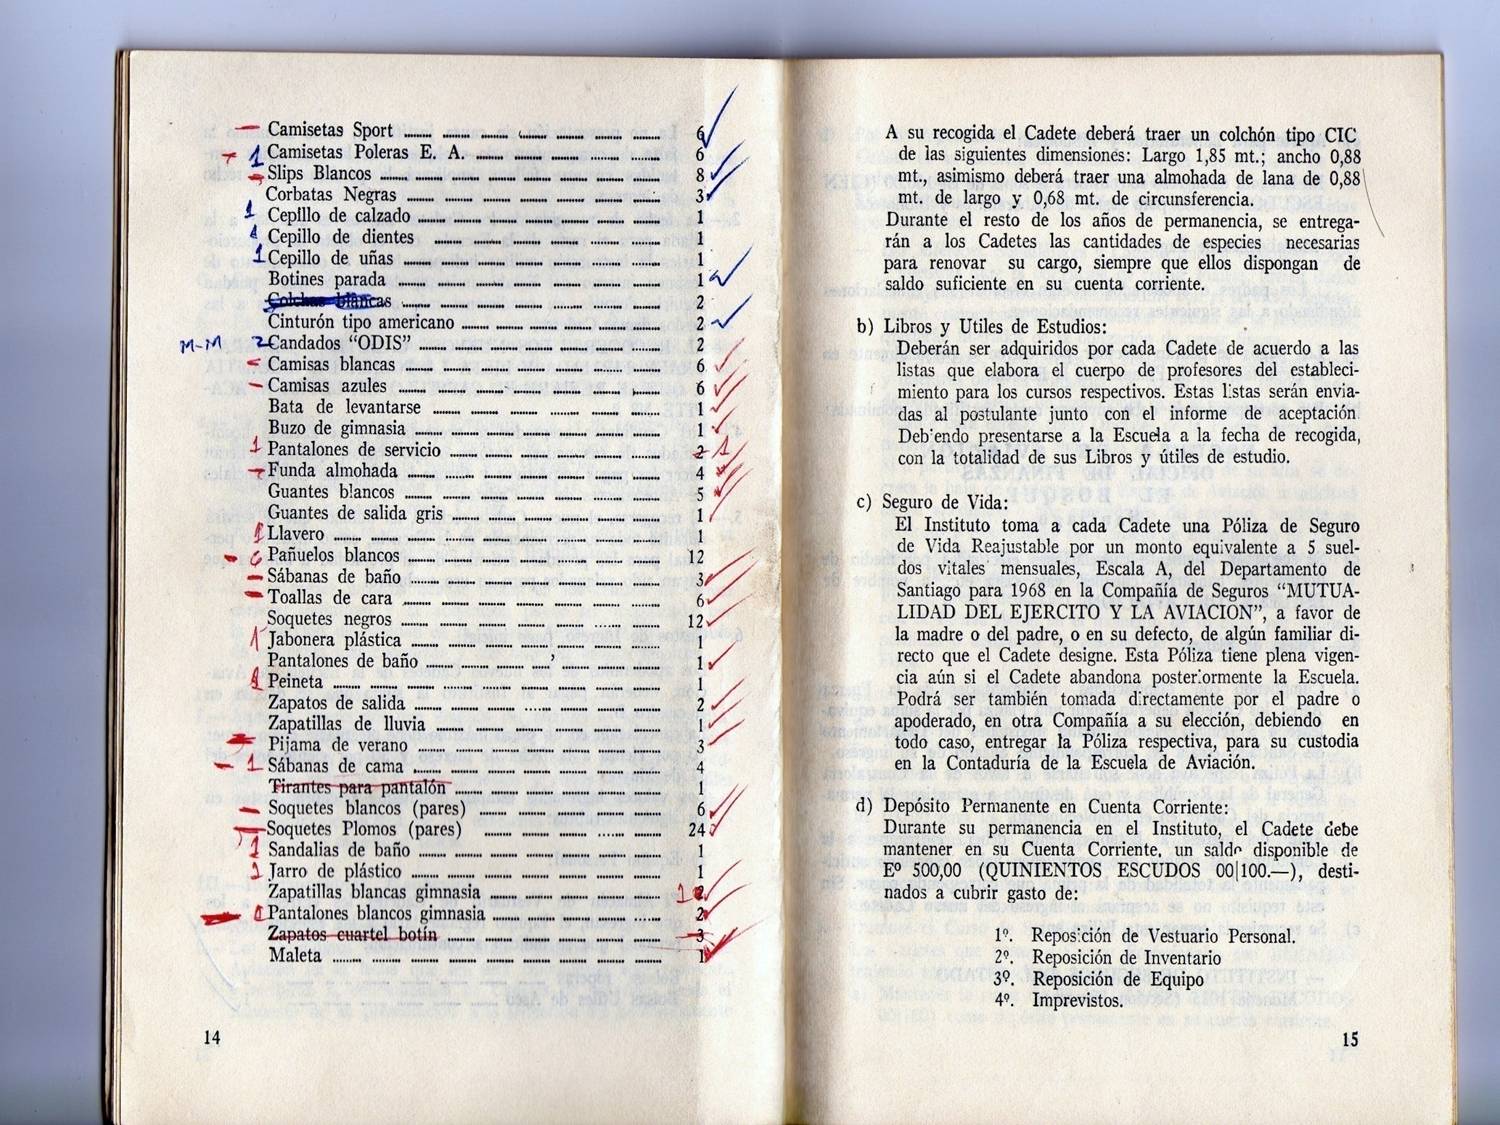 Camisetas Sport 6
1 Camisetas Poleras E. A. 6
Slips Blancos 8
Corbatas Negras 3
1 Cepillo de calzado 1
1 Cepillo de dientes 1
1 Cepillo de uñas 1
Botines parada 1
Colchas blancas 2
Cinturón tipo americano 2
M-M 2 Candados “ODIS” 2
Camisas blancas 6
Camisas azules 6
Bata de levantarse 1
Buzo de gimnasia 1
1 Pantalones de servicio 2 1
Funda almohada 4
Guantes blancos 5
Guantes de salida gris 1
1 Llavero 1
6 Pañuelos blancos 12
Sábanas de baño 3
Toallas de cara 6
Soquetes negros 12
1 Jabonera plástica 1
Pantalones de baño 1
1 Peineta 1
Zapatos de salida 2
Zapatillas de lluvia 1
Pijama de verano 3
1 Sábanas de cama 4
Tirantes para pantalón 1
Soquetes blancos (pares) 6
Soquetes Plomos (pares) 24
1 Sandalias de baño 1
1 Jarro de plástico 1
Zapatillas blancas gimnasia 1 2
1 Pantalones blancos gimnasia 2
Zapatos cuartel botín 3
Maleta 1
14
A su recogida el Cadete deberá traer un colchón tipo CIC
de las siguientes dimensiones: Largo 1,85 mt.; ancho 0,88
mt., asimismo deberá traer una almohada de lana de 0,88
mt. de largo y 0,68 mt. de circunsferencia.
Durante el resto de los años de permanencia, se entrega-
rán a los Cadetes las cantidades de especies necesarias
para renovar su cargo, siempre que ellos dispongan de
saldo suficiente en su cuenta corriente.
b) Libros y Utiles de Estudios:
Deberán ser adquiridos por cada Cadete de acuerdo a las
listas que elabora el cuerpo de profesores del estableci-
miento para los cursos respectivos. Estas listas serán envia-
das al postulante junto con el informe de aceptación
Debiendo presentarse a la Escuela a la fecha de recogida,
con la totalidad de sus Libros y útiles de estudio.
c) Seguro de Vida:
El Instituto toma a cada Cadete una Póliza de Seguro
de Vida Reajustable por un monto equivalente a 5 suel-
dos vitales mensuales, Escala A, del Departamento de
Santiago para 1968 en la Compañía de Seguros “MUTUA-
LIDAD DEL EJERCITO Y LA AVIACION”, a favor de
la madre o del padre, o en su defecto, de algún familiar di-
recto que el Cadete designe. Esta Póliza tiene plena vigen-
cia aún si el Cadete abandona posteriormente la Escuela.
Podrá ser también tomada directamente por el padre o
apoderado, en otra Compañía a su elección, debiendo en
todo caso, entregar la Póliza respectiva, para su custodia
en la Contaduría de la Escuela de Aviación.
d) Depósito Permanente en Cuenta Corriente:
Durante su permanencia en el Instituto, el Cadete debe
mantener en su Cuenta Corriente, un saldo disponible de
Eº 500,00 (QUINIENTOS ESCUDOS 00|100.—), desti-
nados a cubrir gasto de:
1º. Reposición de Vestuario Personal.
2º. Reposición de Inventario
3º. Reposición de Equipo
4º. Imprevistos.
15